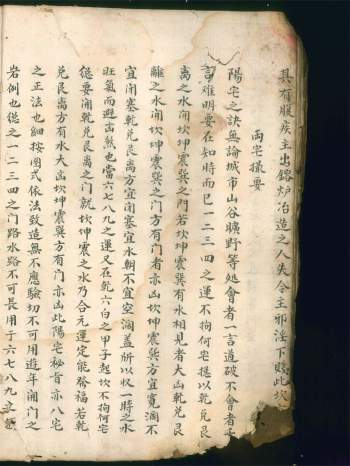 具有服疾主出鎔炉冶造之人失令主邪淫下賤此坎
両宅撮要
陽宅之訣無論城市山谷曠野等処會者一言道破不會者千
言难明要在知時而已一二三四之運不拘何宅捴以乾兑艮
离之水用坎坤震巽之门若坎坤震巽有水相見者大凶乾兑艮
離之水開坎坤震巽之门方有门者亦凶坎坤震巽方宜寛濶不
宜闭塞乾兑艮离方宜闭塞宜水朝不宜空濶盖所以收一時之水
旺氣而避击煞也當六七八九之運又在乾六白之甲子起坎不拘何宅
捴要闹乾兑艮离之门就坎坤震之水乃合元運定能發福若乾
兑艮离方有水大凶坎坤震巽方有门亦凶此陽宅秘旨亦八宅
之正法也細按图式依法致造無不應驗切不可用遊年闹门之
岩例也捴之一二三四之门路水路不可長用于六七八九之